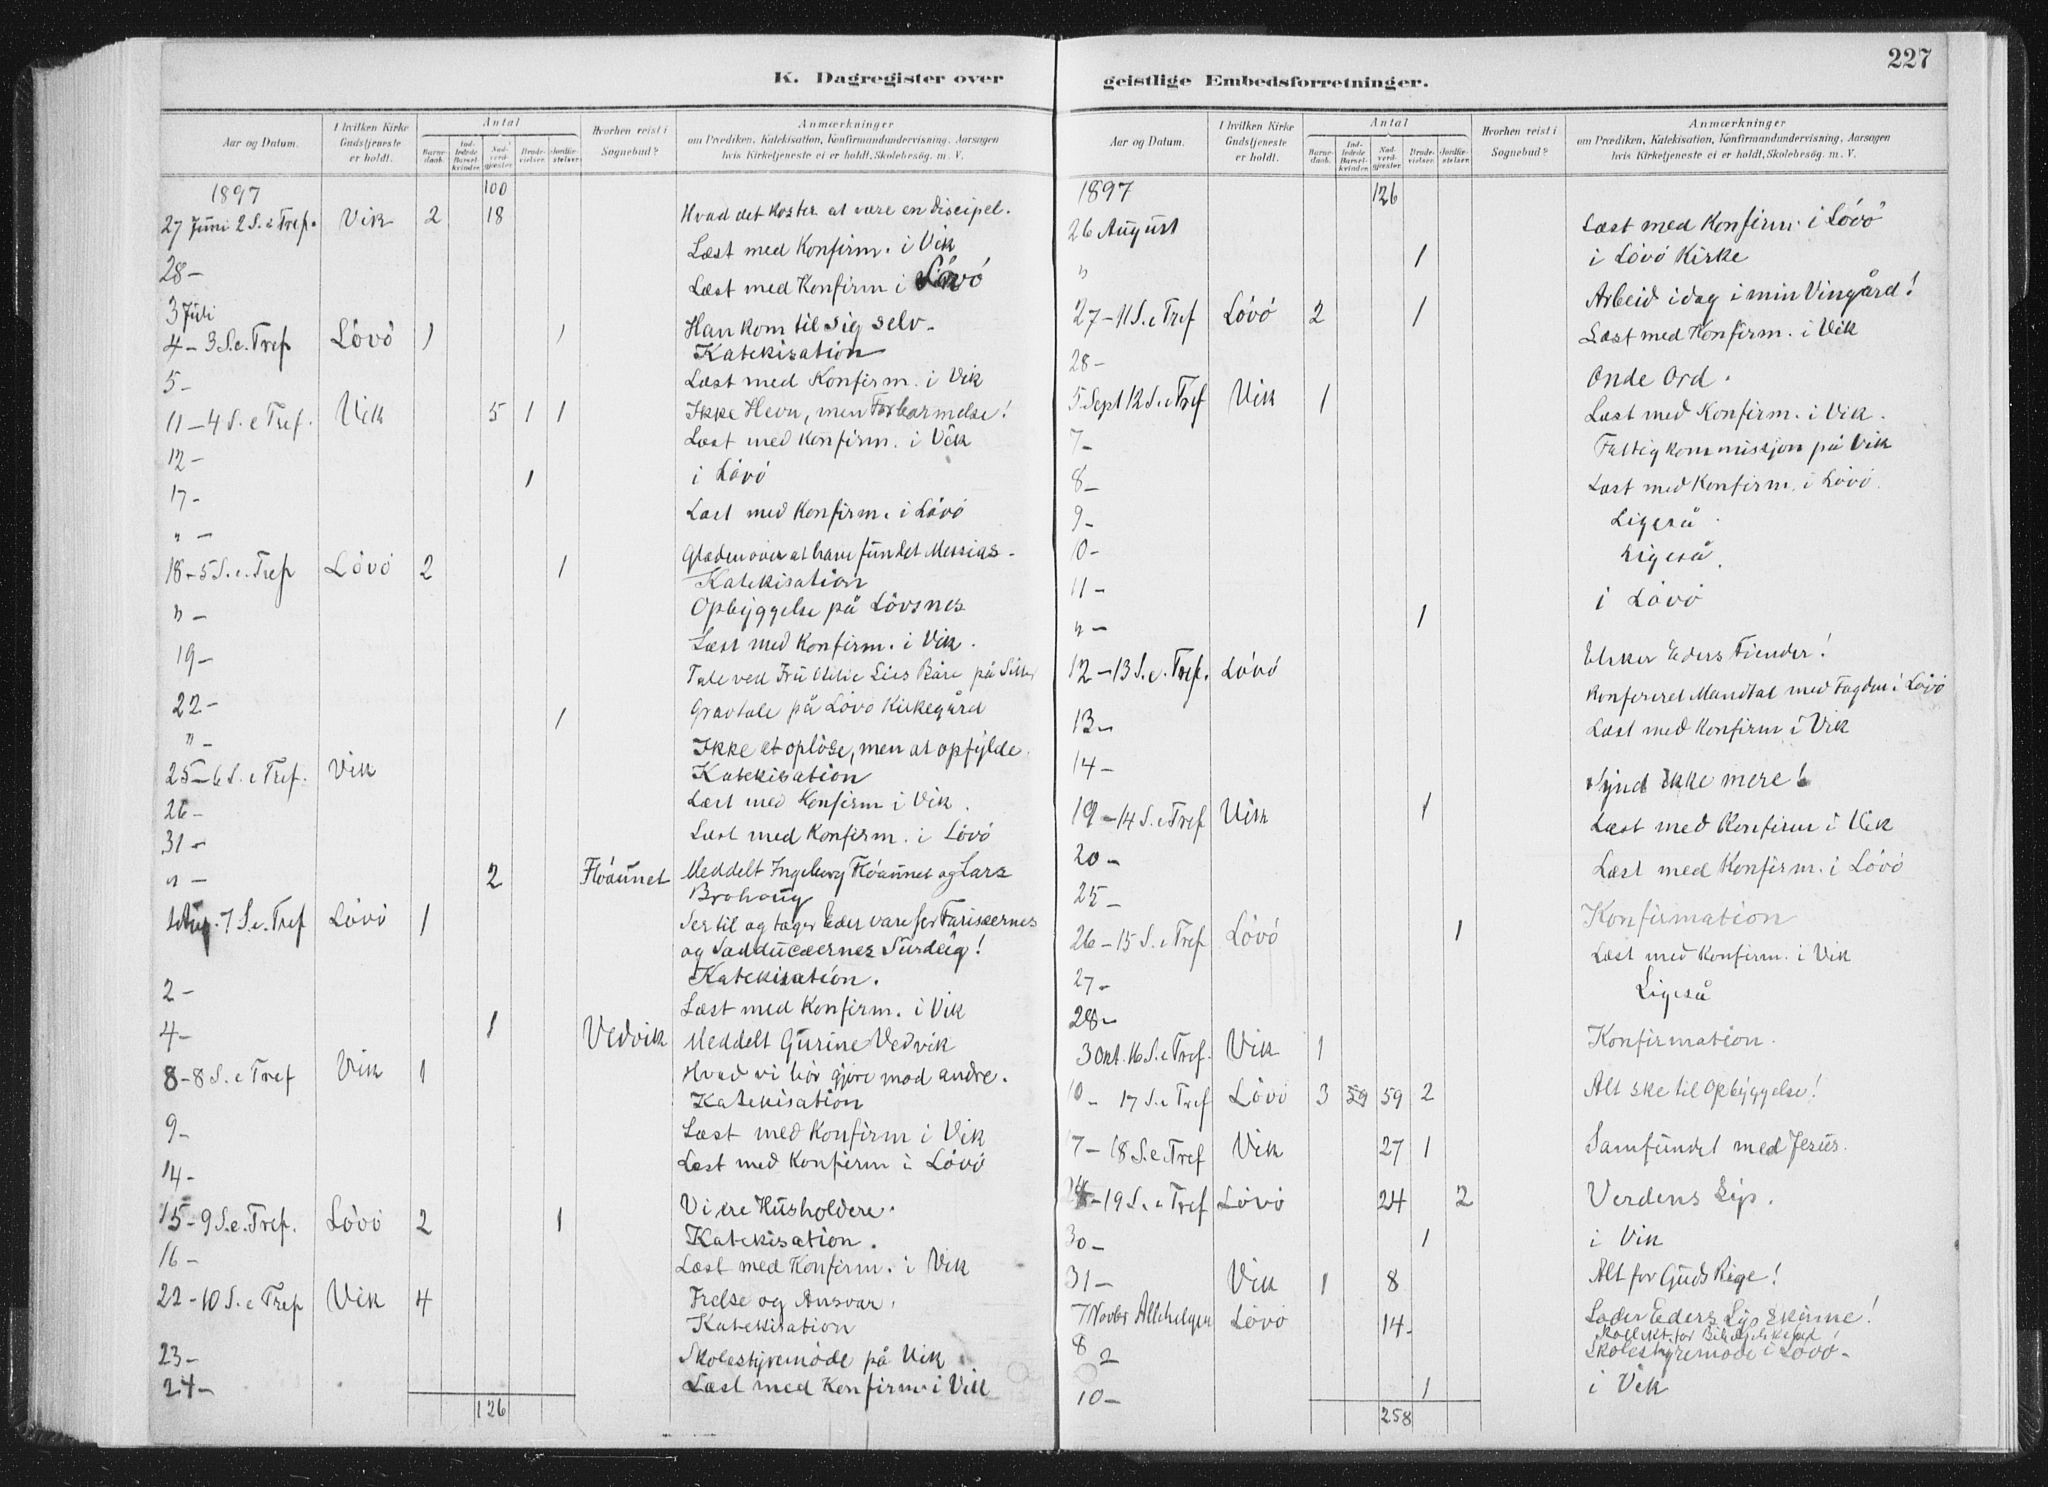 K. Dagregister over
Aar og Datum.
I hvilken Kirke Gudstjeneste er holdt.
Antal
Barne-daab.
Ind-ledede Barsel-kvinder.
Nad-verd-gjester.
Brude-vielser.
Jordfæ-stelser.
Hvorhen reist i Sognebud?
Anmærkninger
om Prædiken, Katekisation, Konfirmandundervisning, Aarsagen
hvis Kirketjeneste ei er holdt, Skolebesøg. m. V.
1897 100
27 Juni 2 S. e Tref. Vik 2 18 Hvad det koster at være en discipel.
28 - Læst med Konfirm. i Vik
3 Juli Læst med Konfirm i Lövö
4 - 3 S. e. Tref Lövö 1 1 Han kom til sig selv.
Katekisation
5 - Læst med Konfirm. i Vik
11 - 4 S. e Tref. Vik 5 1 1 Ikke Hevn, men Forbarmelse!
12 - Læst med Konfirm. i Vik
17 - 1 i Lövö
" - Læst med Konfirm. i Lövö
18 - 5 S. e. Tref Lövö 2 1 Glæden over at have fundet Messias -
Katekisation
" - Opbyggelse på Lövsnes
19 - Læst med Konfirm. i Vik.
22 - Tale ved Fru Lies Båre på
" - 1 Gravtale på Lövö Kirkegård
25 - 6 S. e Tref. Vik Ikke at oplöse, men at opfylde.
Katekisation
26 - Læst med Konfirm i Vik.
31 - Læst med Konfirm. i Lövö
" - 2 Flöaunet Meddelt Ingeborg Flöaunet og Lars
Brohaug
1 Aug. 7 S. e. Tref Lövö 1 Ser til og tager Eder vare for Farisæernes
og Sadducæernes Surdeig!
Katekisation.
2 - Læst med Konfirm. i Vik
4 - 1 Vedvik Meddelt Gurine Vedvik
8 - 8 S. e Tref Vik 1 Hvad vi bör gjöre mod andre.
Katekisation
9 - Læst med Konfirm i Vik
14 - Læst med Konfirm i Lövö
15 - 9 S. e. Tref. Lövö 2 1 Vi ere Husholdere.
Katekisation.
16 - Læst med Konfirm. i Vik
22 - 10 S. e Tref Vik 4 Frelse og Ansvar.
Katekisation
23 - Skolestyremöde på Vik
24 - Læst med Konfirm. i Vik
126
geistlige Embedsforretninger.
227
Aar og Datum.
I hvilken Kirke Gudstjeneste er holdt.
Antal
Barne-daab.
Ind-ledede Barsel-kvinder.
Nad-verd-gjester.
Brude-vielser.
Jordfæ-stelser.
Hvorhen reist i Sognebud?
Anmærkninger
om Prædiken, Katekisation, Konfirmandundervisning, Aarsagen
hvis Kirketjeneste ei er holdt, Skolebesøg. m. V.
1897 126
26 August Læst med Konfirm. i Lövö
" 1 i Lövö Kirke
27 - 11 S. e Tref Lövö 2 1 Arbeid idag i min Vingård!
28 - Læst med Konfirm. i Vik
5 Sept 12 S. e Tref Vik 1 Onde Ord.
7 - Læst med Konfirm. i Vik.
8 - Fattigkommissjon på Vik
9 - Læst med Konfirm. i Lövö.
10 - Ligeså.
11 - Ligeså.
" - 1 i Lövö
12 - 13 S. e. Tref. Lövö Elsker Eders Fiender!
13 - Konfereret Mandtal med Fogden i Lövö
14 - Læst med Konfirm i Vik
19 - 14 S. e Tref Vik 1 Synd ikke mere!
20 - Læst med Konfirm i Vik
25 - Læst med Konfirm. i Lövö
26 - 15 S. e Tref Lövö 1 Konfirmation
27 - Læst med Konfirm. i Vik
28 - Ligeså
3 Okt. 16 S. e Tref. Vik 1 Konfirmation.
10 - 17 S. e Tref Lövö 3 59 59 2 Alt ske til Opbyggelse!
17 - 18 S. e Tref Vik 27 1 Samfundet med Jesus.
24 - 19 S. e Tref Lövö 24 2 Verdens Lys.
30 - 1 i Vik
31 - Vik 1 8 Alt for Guds Rige!
7 Novbr Allehelgen Lövö 14 Lader Eders Lys skinne!
Kollekt. for
8 - Skolestyremöde i Lövö -
10 - 1 i Vik
258